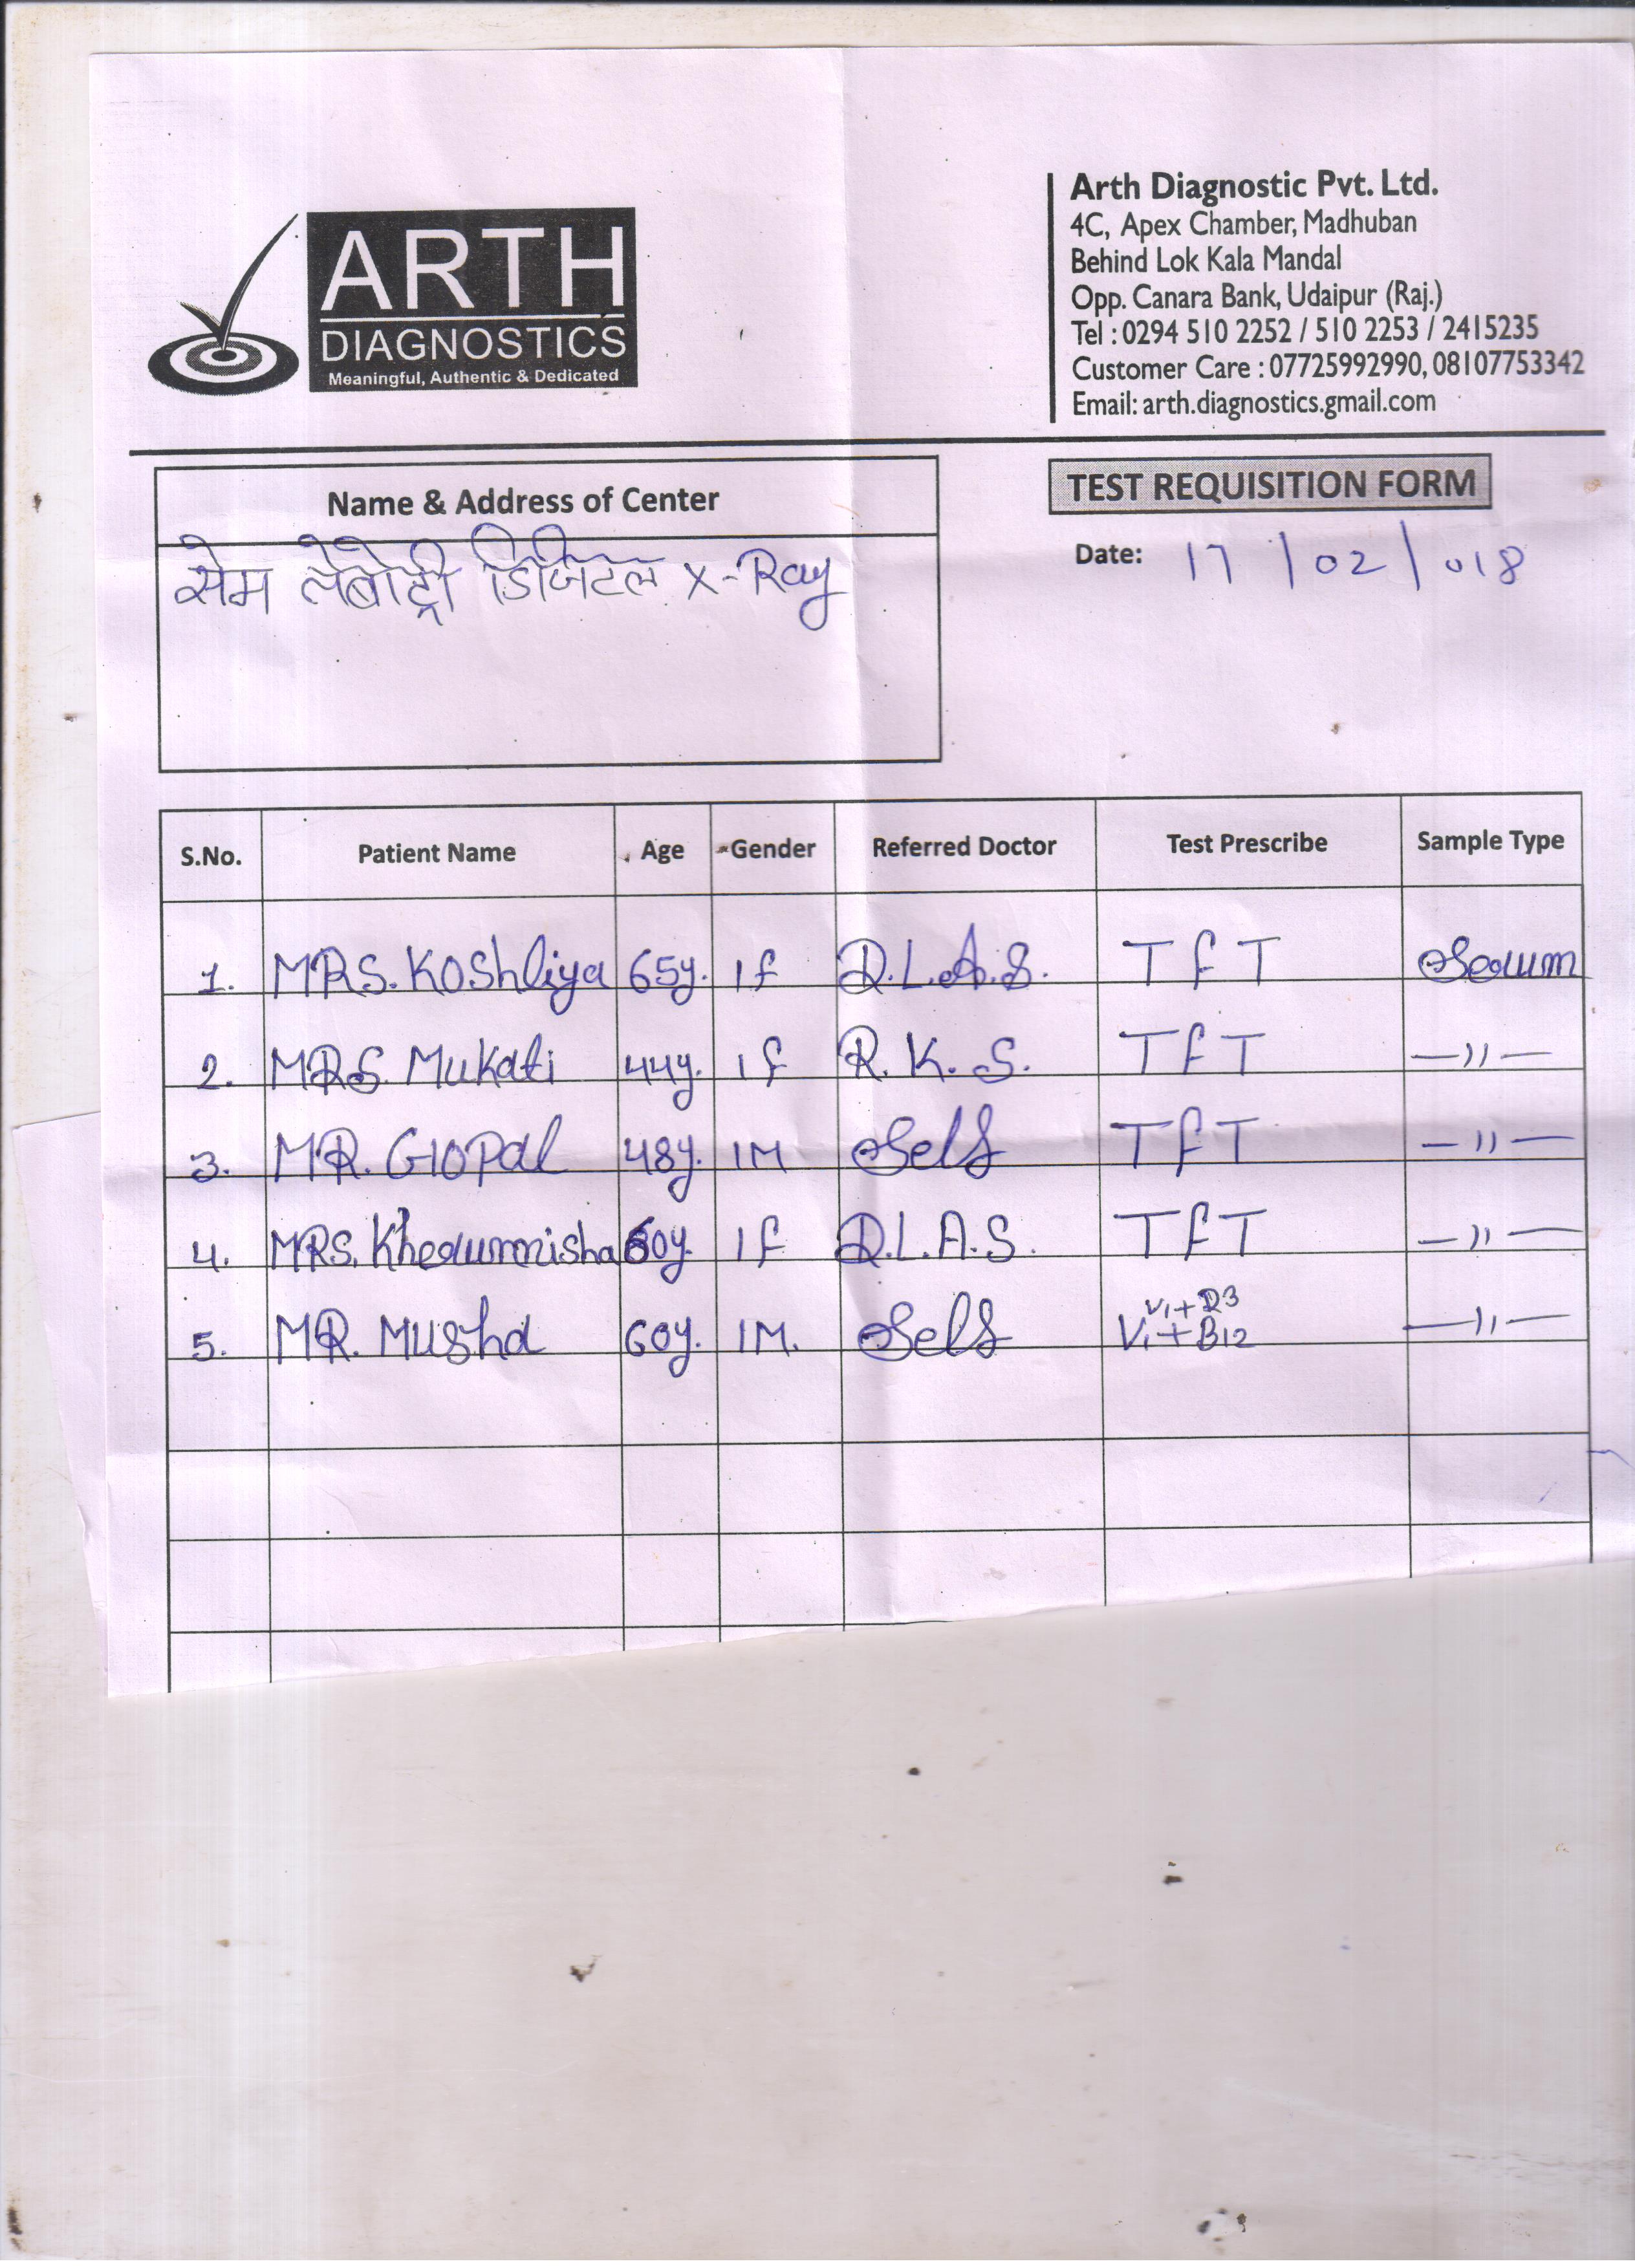 ARTH
DIAGNOSTICS
Meaningful, Authentic & Dedicated
Arth Diagnostic Pvt. Ltd.
4C, Apex Chamber, Madhuban
Behind Lok Kala Mandal
Opp. Canara Bank, Udaipur (Raj.)
Tel : 0294 510 2252 / 510 2253 / 2415235
Customer Care : 07725992990, 08107753342
Email: arth.diagnostics.gmail.com
Name & Address of Center
सेम लेबोट्री डिजिटल X-Ray
TEST REQUISITION FORM
Date: 17/02/018
S.No. Patient Name Age Gender Referred Doctor Test Prescribe Sample Type
1. MRS. Koshliya 65y. 1f D.L.A.S. TfT Serum
2. MRS. Mukati 44y. 1f R.K.S. TfT —〃—
3. MR. Gopal 48y. 1M Self TfT —〃—
4. MRS. Kherunnisha 60y. 1f D.L.A.S. TfT —〃—
5. MR. Musha 60y. 1M. Self Vi+D3 Vi+B12 —〃—